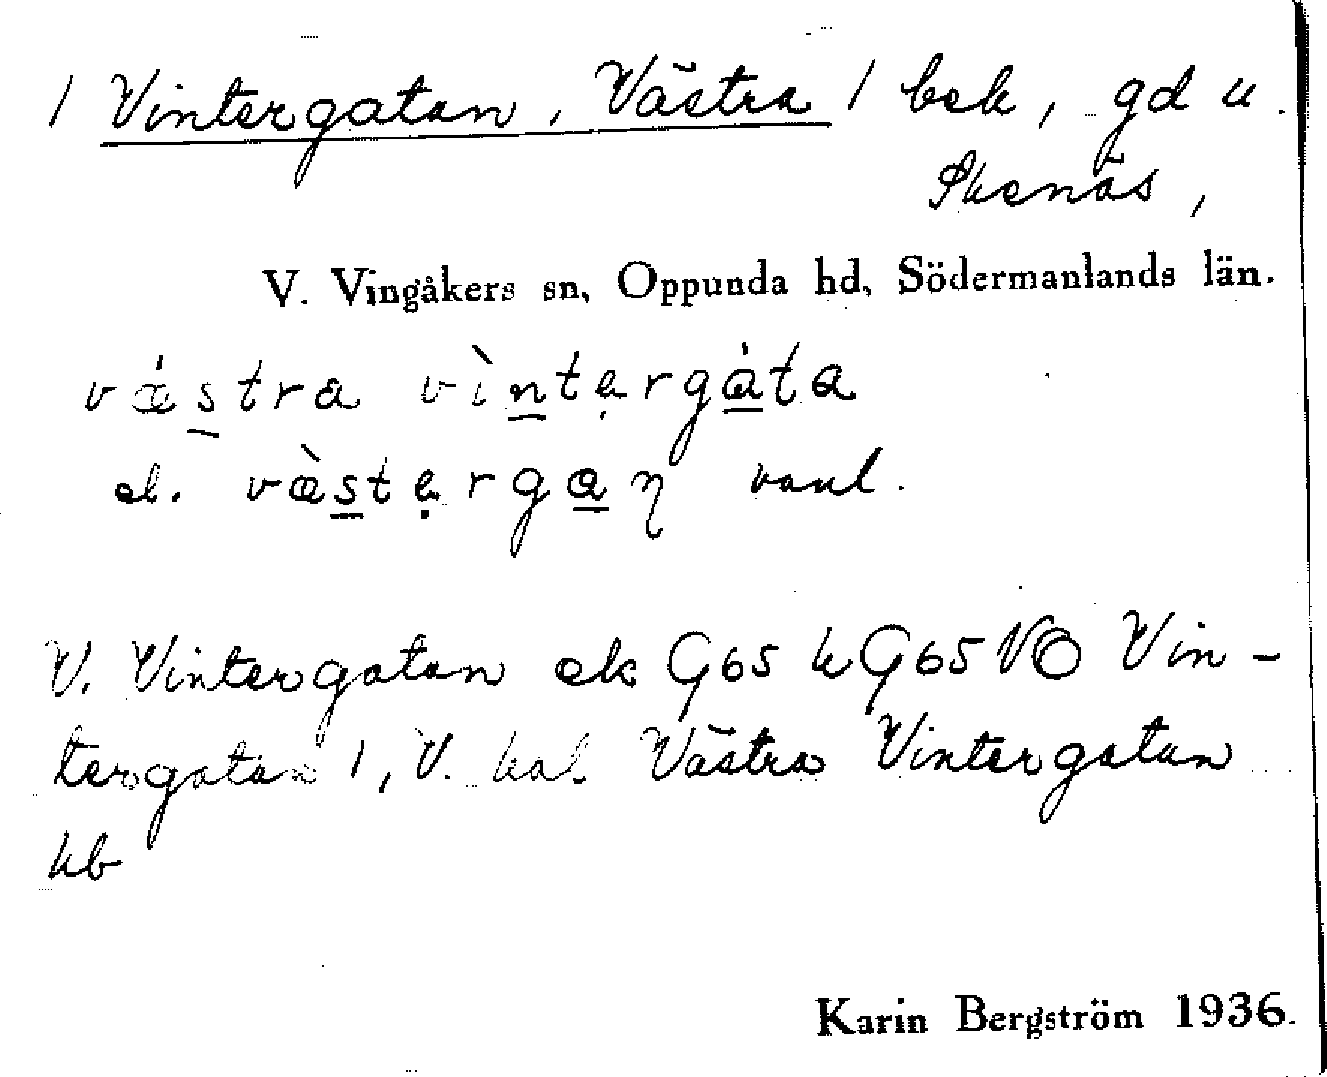 / Vintergatan, Västra / bek, gd u.
Skenäs,
V. Vingåkers sn, Oppunda hd, Södermanlands län.
vǽstra vìntẹrgàta
el. væ̀stẹrgaɳ vanl.
V. Vintergatan ek G65 k G65 VO Vin-
tergatan 1, V. kal. Västra Vintergatan
kb
Karin Bergström 1936.